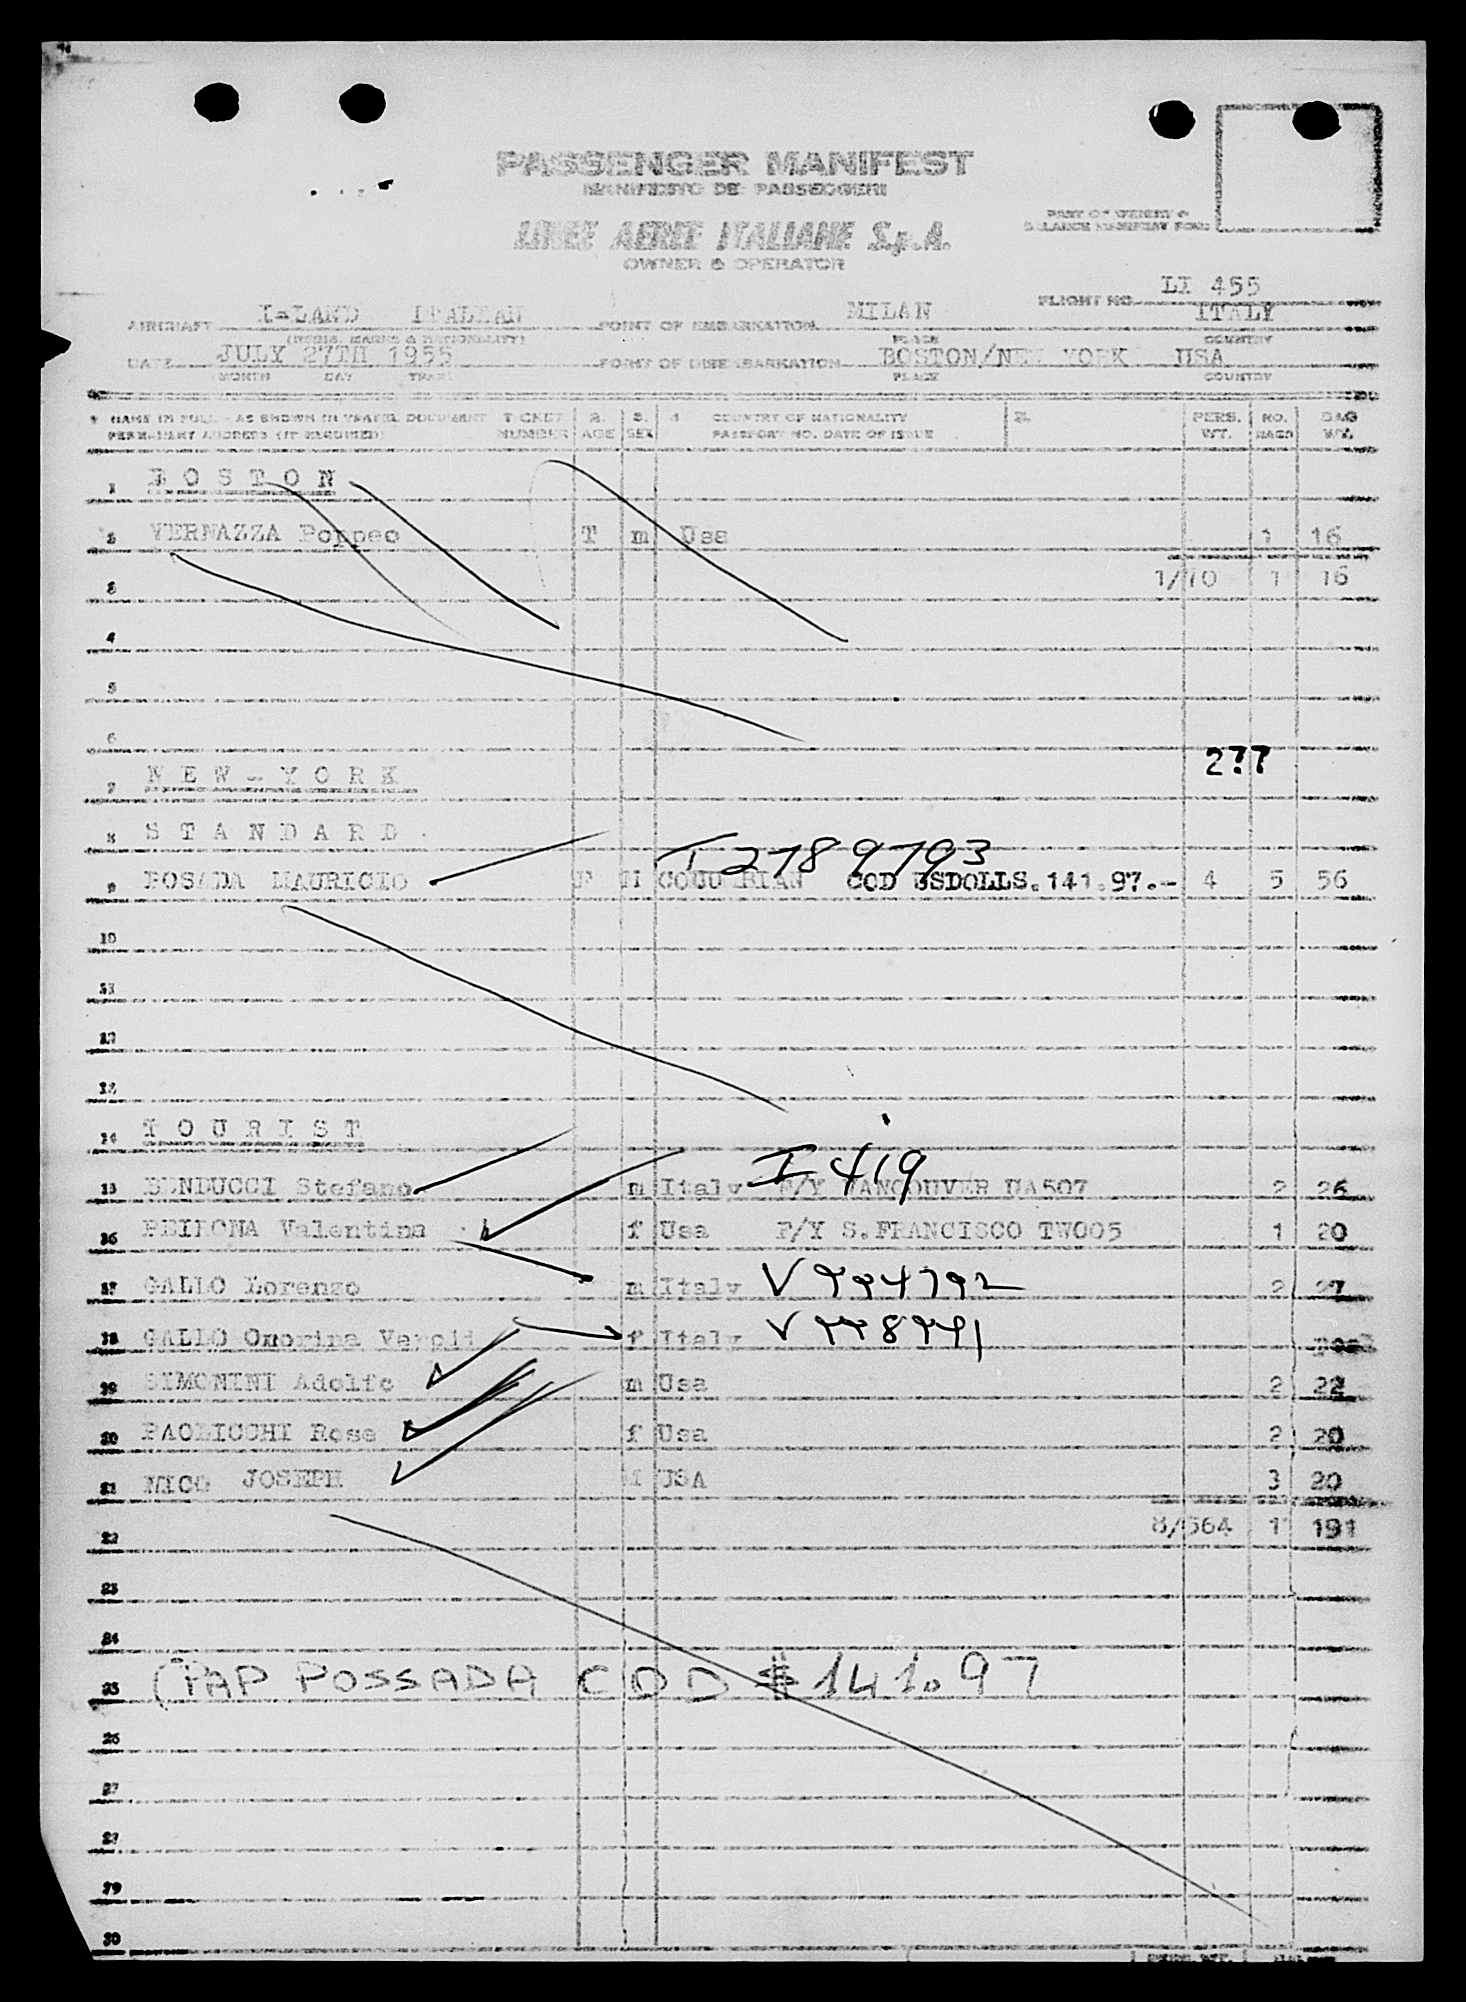 PASSENGER MANIFEST
MANIFESTO DEI PASSEGGERI
LINEE AEREE ITALIANE S.p.A.
OWNER & OPERATOR
PART OF WEIGHT &
BALANCE MANIFEST FORM
AIRCRAFT I-LAND ITALIAN POINT OF EMBARKATION MILAN FLIGHT NO. LI 455 ITALY
(REGIS. MARKS & NATIONALITY) PLACE COUNTRY
DATE JULY 27TH 1955 POINT OF DISEMBARKATION BOSTON/NEW YORK USA
MONTH DAY YEAR PLACE COUNTRY
NAME IN FULL - AS SHOWN IN TRAVEL DOCUMENT TICKET 2. 3. 4 COUNTRY OF NATIONALITY 5. PERS. NO. BAG
PERMANENT ADDRESS (IF REQUIRED) NUMBER AGE SEX PASSPORT NO. DATE OF ISSUE WT. BAGS WT.
1 B O S T O N
2 VERNAZZA Poppeo T m Usa 1 16
3 1/70 1 16
4
5
6
277
7 N E W - Y O R K
8 S T A N D A R D
I 2789793
9 POSADA MAURICIO F M COD USDOLLS.141.97.- 4 5 56
10
11
12
13
14 T O U R I S T
I 419
15 BENDUCCI Stefano m Italy F/Y VANCOUVER UA507 2 26
16 Valentina f Usa F/Y S.FRANCISCO TW005 1 20
17 GALLO Lorenzo m Italy V 994792 2 27
18 GALLO Onorina f Italy V 998991
19 SIMONINI Adolfo m Usa 2 22
20 PAOLICCHI Rosa f Usa 2 20
21 JOSEPH M USA 3 20
22 8/564 17 191
23
24
25 (PAP POSSADA COD $141.97
26
27
28
29
30